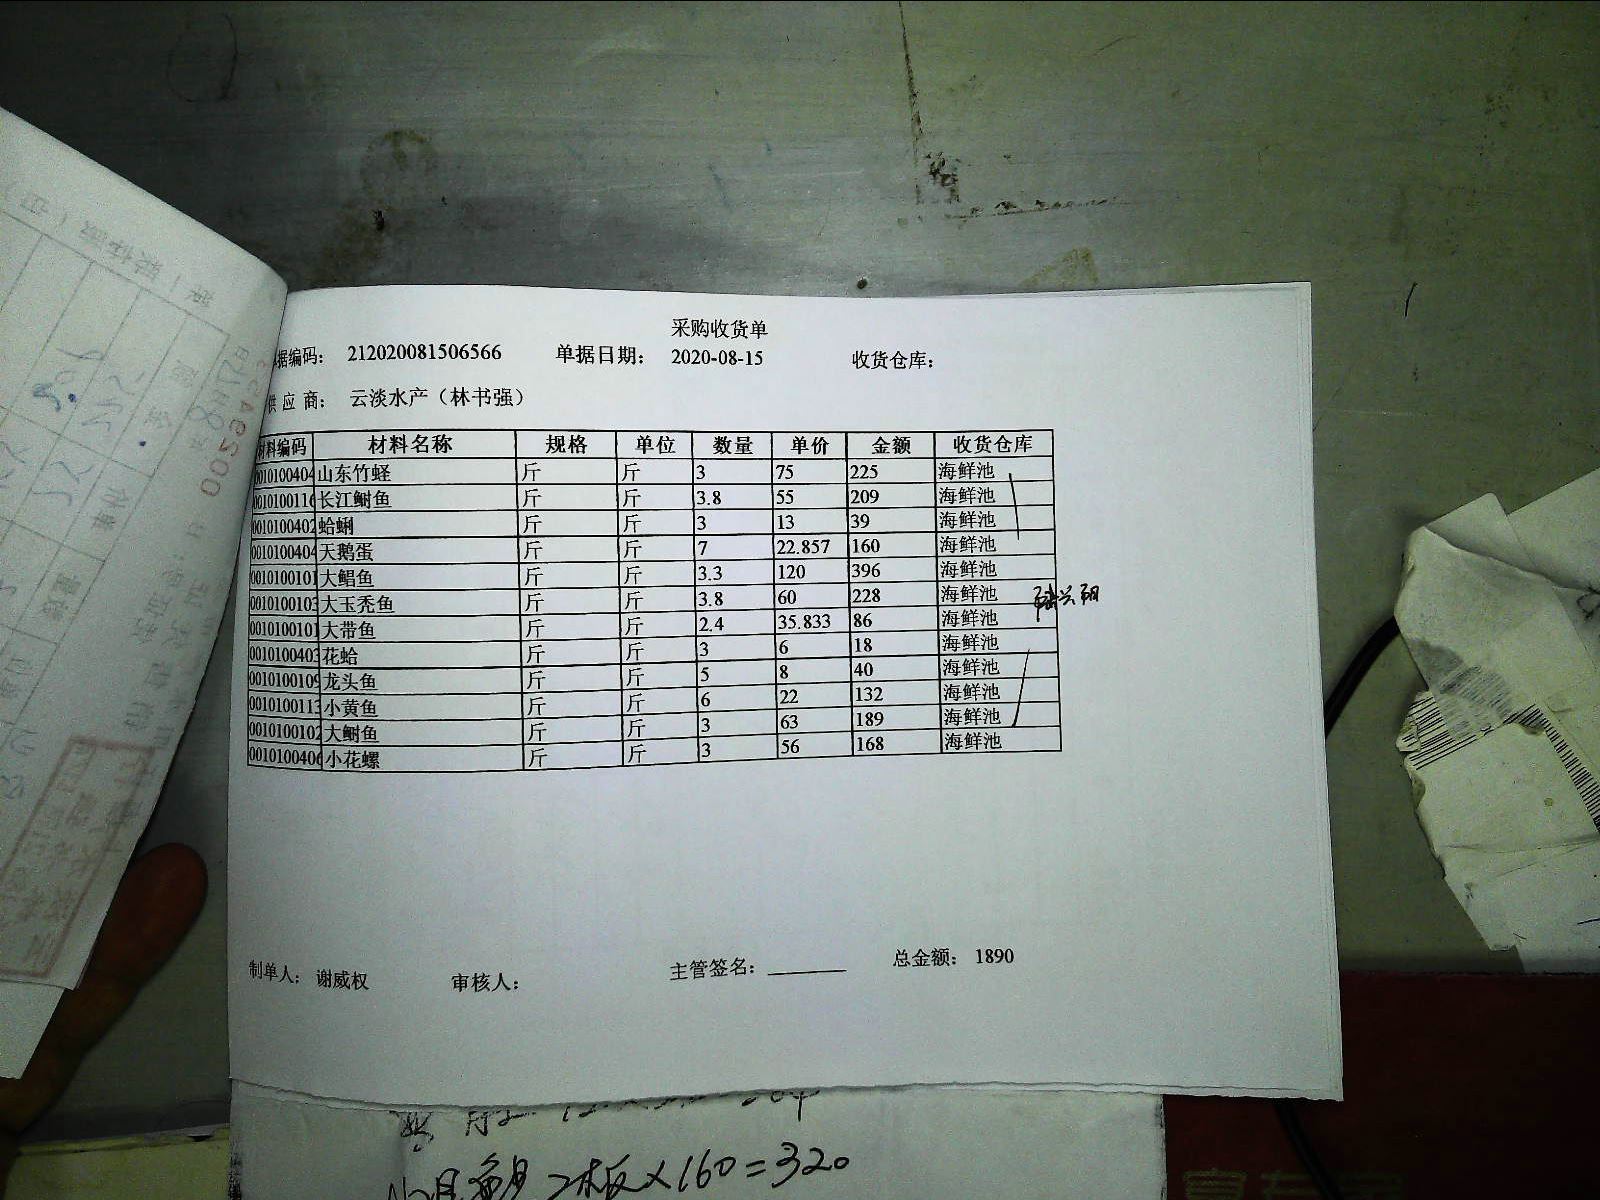 采购收货单
据编码： 212020081506566 单据日期： 2020-08-15 收货仓库：
供应商： 云淡水产（林书强）
材料编码 材料名称 规格 单位 数量 单价 金额 收货仓库
0010100404 山东竹蛏 斤 斤 3 75 225 海鲜池
0010100116 长江鲥鱼 斤 斤 3.8 55 209 海鲜池
0010100402 蛤蜊 斤 斤 3 13 39 海鲜池
0010100404 天鹅蛋 斤 斤 7 22.857 160 海鲜池
0010100101 大鲳鱼 斤 斤 3.3 120 396 海鲜池
0010100103 大玉秃鱼 斤 斤 3.8 60 228 海鲜池
0010100101 大带鱼 斤 斤 2.4 35.833 86 海鲜池
0010100403 花蛤 斤 斤 3 6 18 海鲜池
0010100109 龙头鱼 斤 斤 5 8 40 海鲜池
0010100113 小黄鱼 斤 斤 6 22 132 海鲜池
0010100102 大鲥鱼 斤 斤 3 63 189 海鲜池
0010100406 小花螺 斤 斤 3 56 168 海鲜池
制单人： 谢威权 审核人： 主管签名： 总金额： 1890
2板×160=320